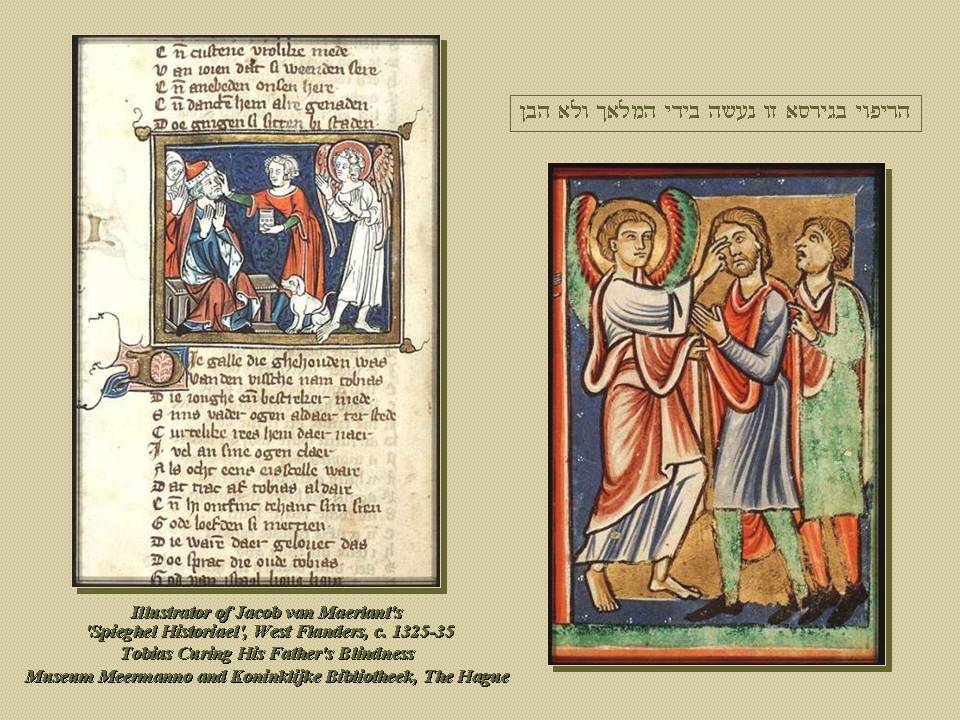 E n̄ custene vrolike mede
V an ioien dat si weenden sere
E n̄ anebeden onsen here
E n̄ danctē hem alre genaden
D oe gingen si sitten bi staden
D ie galle die ghehouden was
Van den vissche nam tobias
D ie ionghe en̄ bestreker mede
S inis vader ogen aldaer ter stede
C urtelike rees hem daer naer
I vel an sine ogen claer
A ls ocht eens eis scelle ware
D at trac af tobias aldare
E n̄ hi ontfinc tehant sin sien
G ode loefden si mettien
D ie warē daer gelovet das
D oe sprac die oude tobias
God van israel
Illustrator of Jacob van Maerlant's
'Spieghel Historiael', West Flanders, c. 1325-35
Tobias Curing His Father's Blindness
Museum Meermanno and Koninklijke Bibliotheek, The Hague
הריפוי בגירסא זו נעשה בידי המלאך ולא הבן